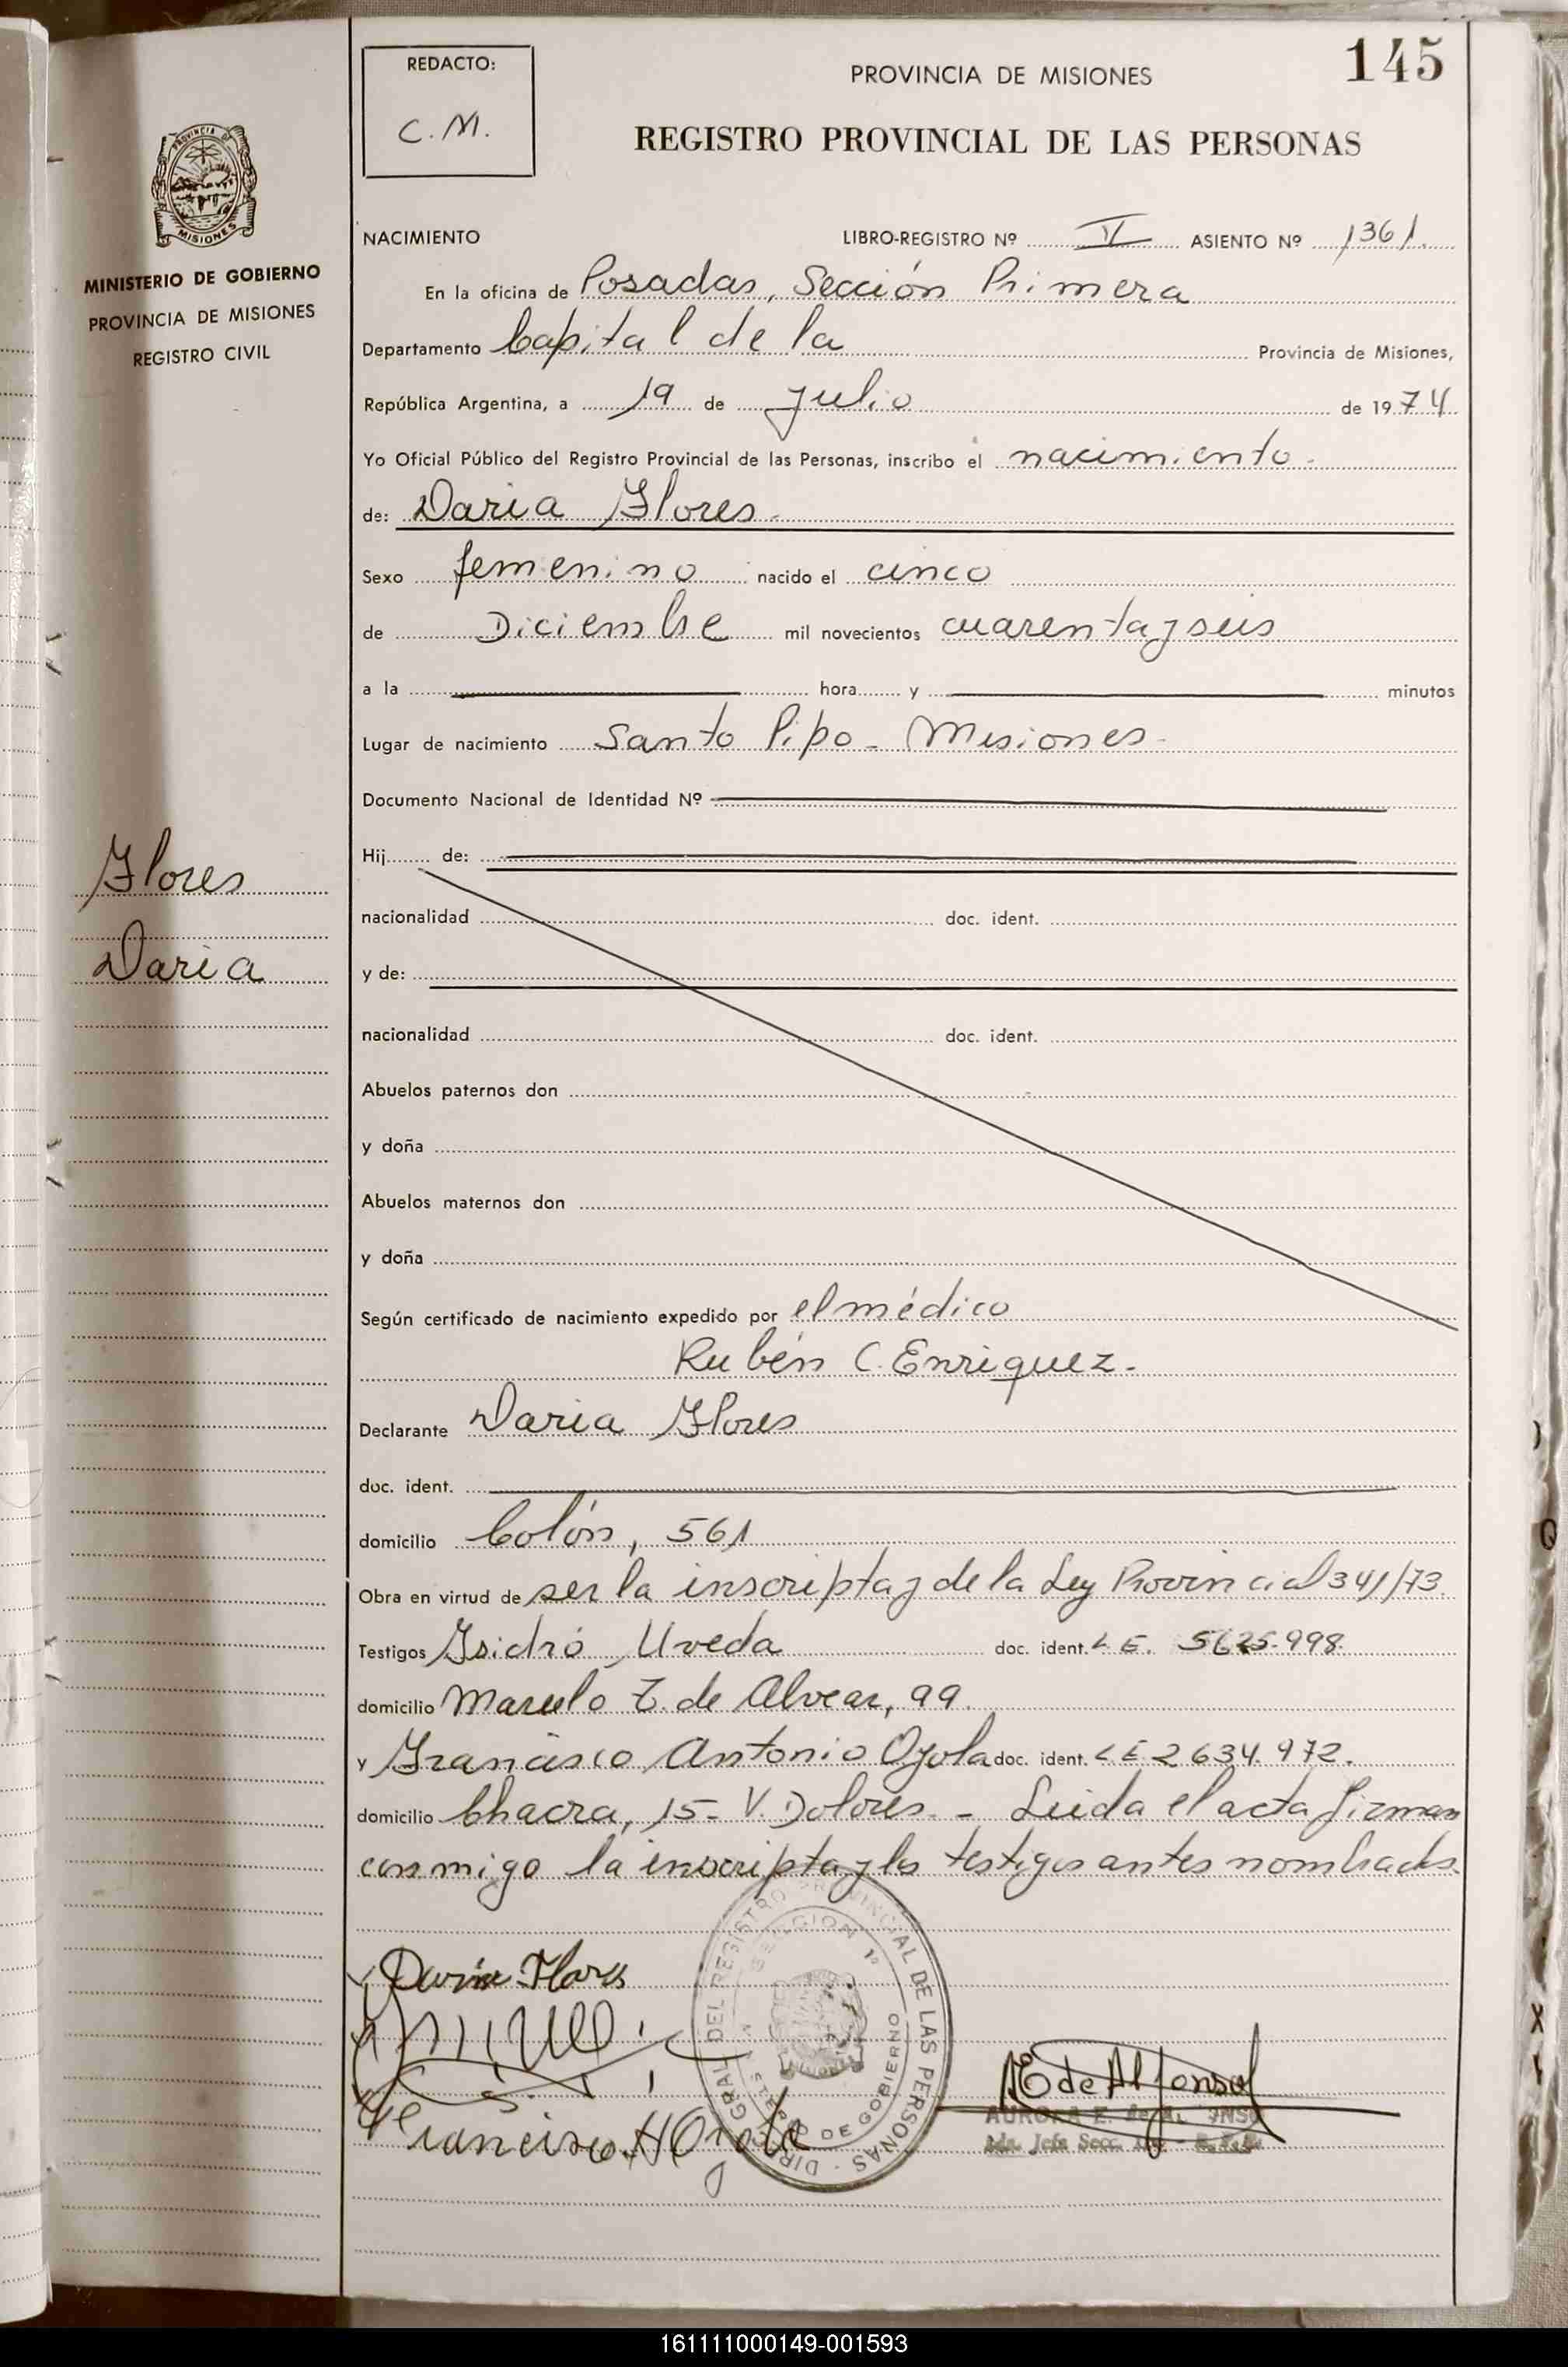 145
REDACTO:
C.M.
PROVINCIA DE MISIONES
REGISTRO PROVINCIAL DE LAS PERSONAS
MISIONES
MINISTERIO DE GOBIERNO
PROVINCIA DE MISIONES
REGISTRO CIVIL
Flores
Daria
NACIMIENTO LIBRO-REGISTRO Nº V ASIENTO Nº 1361.
En la oficina de Posadas, Sección Primera
Departamento Capital de la Provincia de Misiones,
República Argentina, a 19 de Julio de 1974
Yo Oficial Público del Registro Provincial de las Personas, inscribo el nacimiento.
de: Daria Flores.
Sexo femenino nacido el cinco
de Diciembre mil novecientos cuarenta y seis
a la hora y minutos
Lugar de nacimiento Santo Pipo - Misiones.
Documento Nacional de Identidad Nº
Hij de:
nacionalidad doc. ident.
y de:
nacionalidad doc. ident.
Abuelos paternos don
y doña
Abuelos maternos don
y doña
Según certificado de nacimiento expedido por el médico
Rubén C. Enriquez.
Declarante Daria Flores
doc. ident.
domicilio Colón, 561
Obra en virtud de ser la inscripta y de la Ley Provincial 341/73.
Testigos Isidro Uveda doc. ident. L E. 5625.998.
domicilio Marcelo T. de Alvear, 99.
y Francisco Antonio Ojola doc. ident. L E. 2634.972.
domicilio Chacra, 15- V. Dolores. - Leida el acta firman
conmigo la inscripta y los testigos antes nombrados.
Daria Flores
Francisco A Ojola
DIREC. GRAL DEL REGISTRO PROVINCIAL DE LAS PERSONAS
SECCION 1ª
DE GOBIERNO
MISIONES
AE de Alfonso
AURORA E. de
Jefa Secc.
161111000149-001593